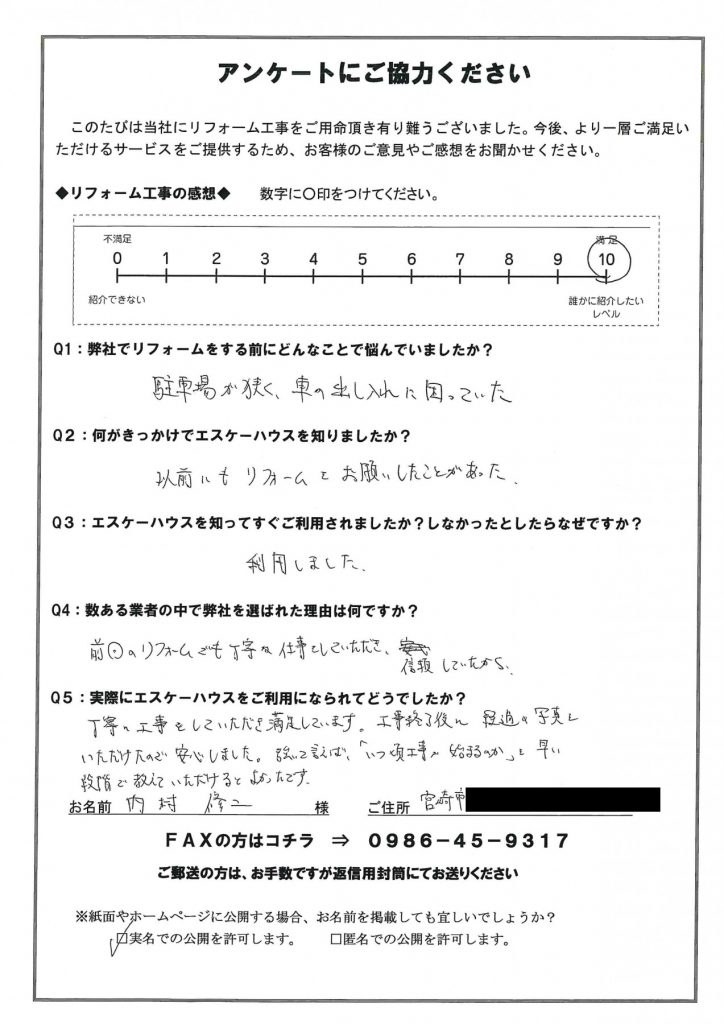 アンケートにご協力ください
このたびは当社にリフォーム工事をご用命頂き有り難うございました。今後、より一層ご満足い
ただけるサービスをご提供するため、お客様のご意見やご感想をお聞かせください。
◆リフォーム工事の感想◆　数字に〇印をつけてください。
不満足　満足
0 1 2 3 4 5 6 7 8 9 10
紹介できない　誰かに紹介したい
レベル
Q1：弊社でリフォームをする前にどんなことで悩んでいましたか？
駐車場が狭く、車の出し入れに困っていた
Q2：何がきっかけでエスケーハウスを知りましたか？
以前にもリフォームをお願いしたことがあった.
Q3：エスケーハウスを知ってすぐご利用されましたか？しなかったとしたらなぜですか？
利用しました.
Q4：数ある業者の中で弊社を選ばれた理由は何ですか？
前回のリフォームでも丁寧な仕事をしていただき、
信頼していたから.
Q5：実際にエスケーハウスをご利用になられてどうでしたか？
丁寧に工事をしていただき満足しています。工事終了後に経過の写真を
いただけたので安心しました。強いて言えば、「いつ頃工事が始まるのか」を早い
段階で教えていただけるとよかったです.
お名前　内村 修二　様　ご住所　宮崎市
ＦＡＸの方はコチラ　⇒　０９８６－４５－９３１７
ご郵送の方は、お手数ですが返信用封筒にてお送りください
※紙面やホームページに公開する場合、お名前を掲載しても宜しいでしょうか？
☑実名での公開を許可します。　□匿名での公開を許可します。